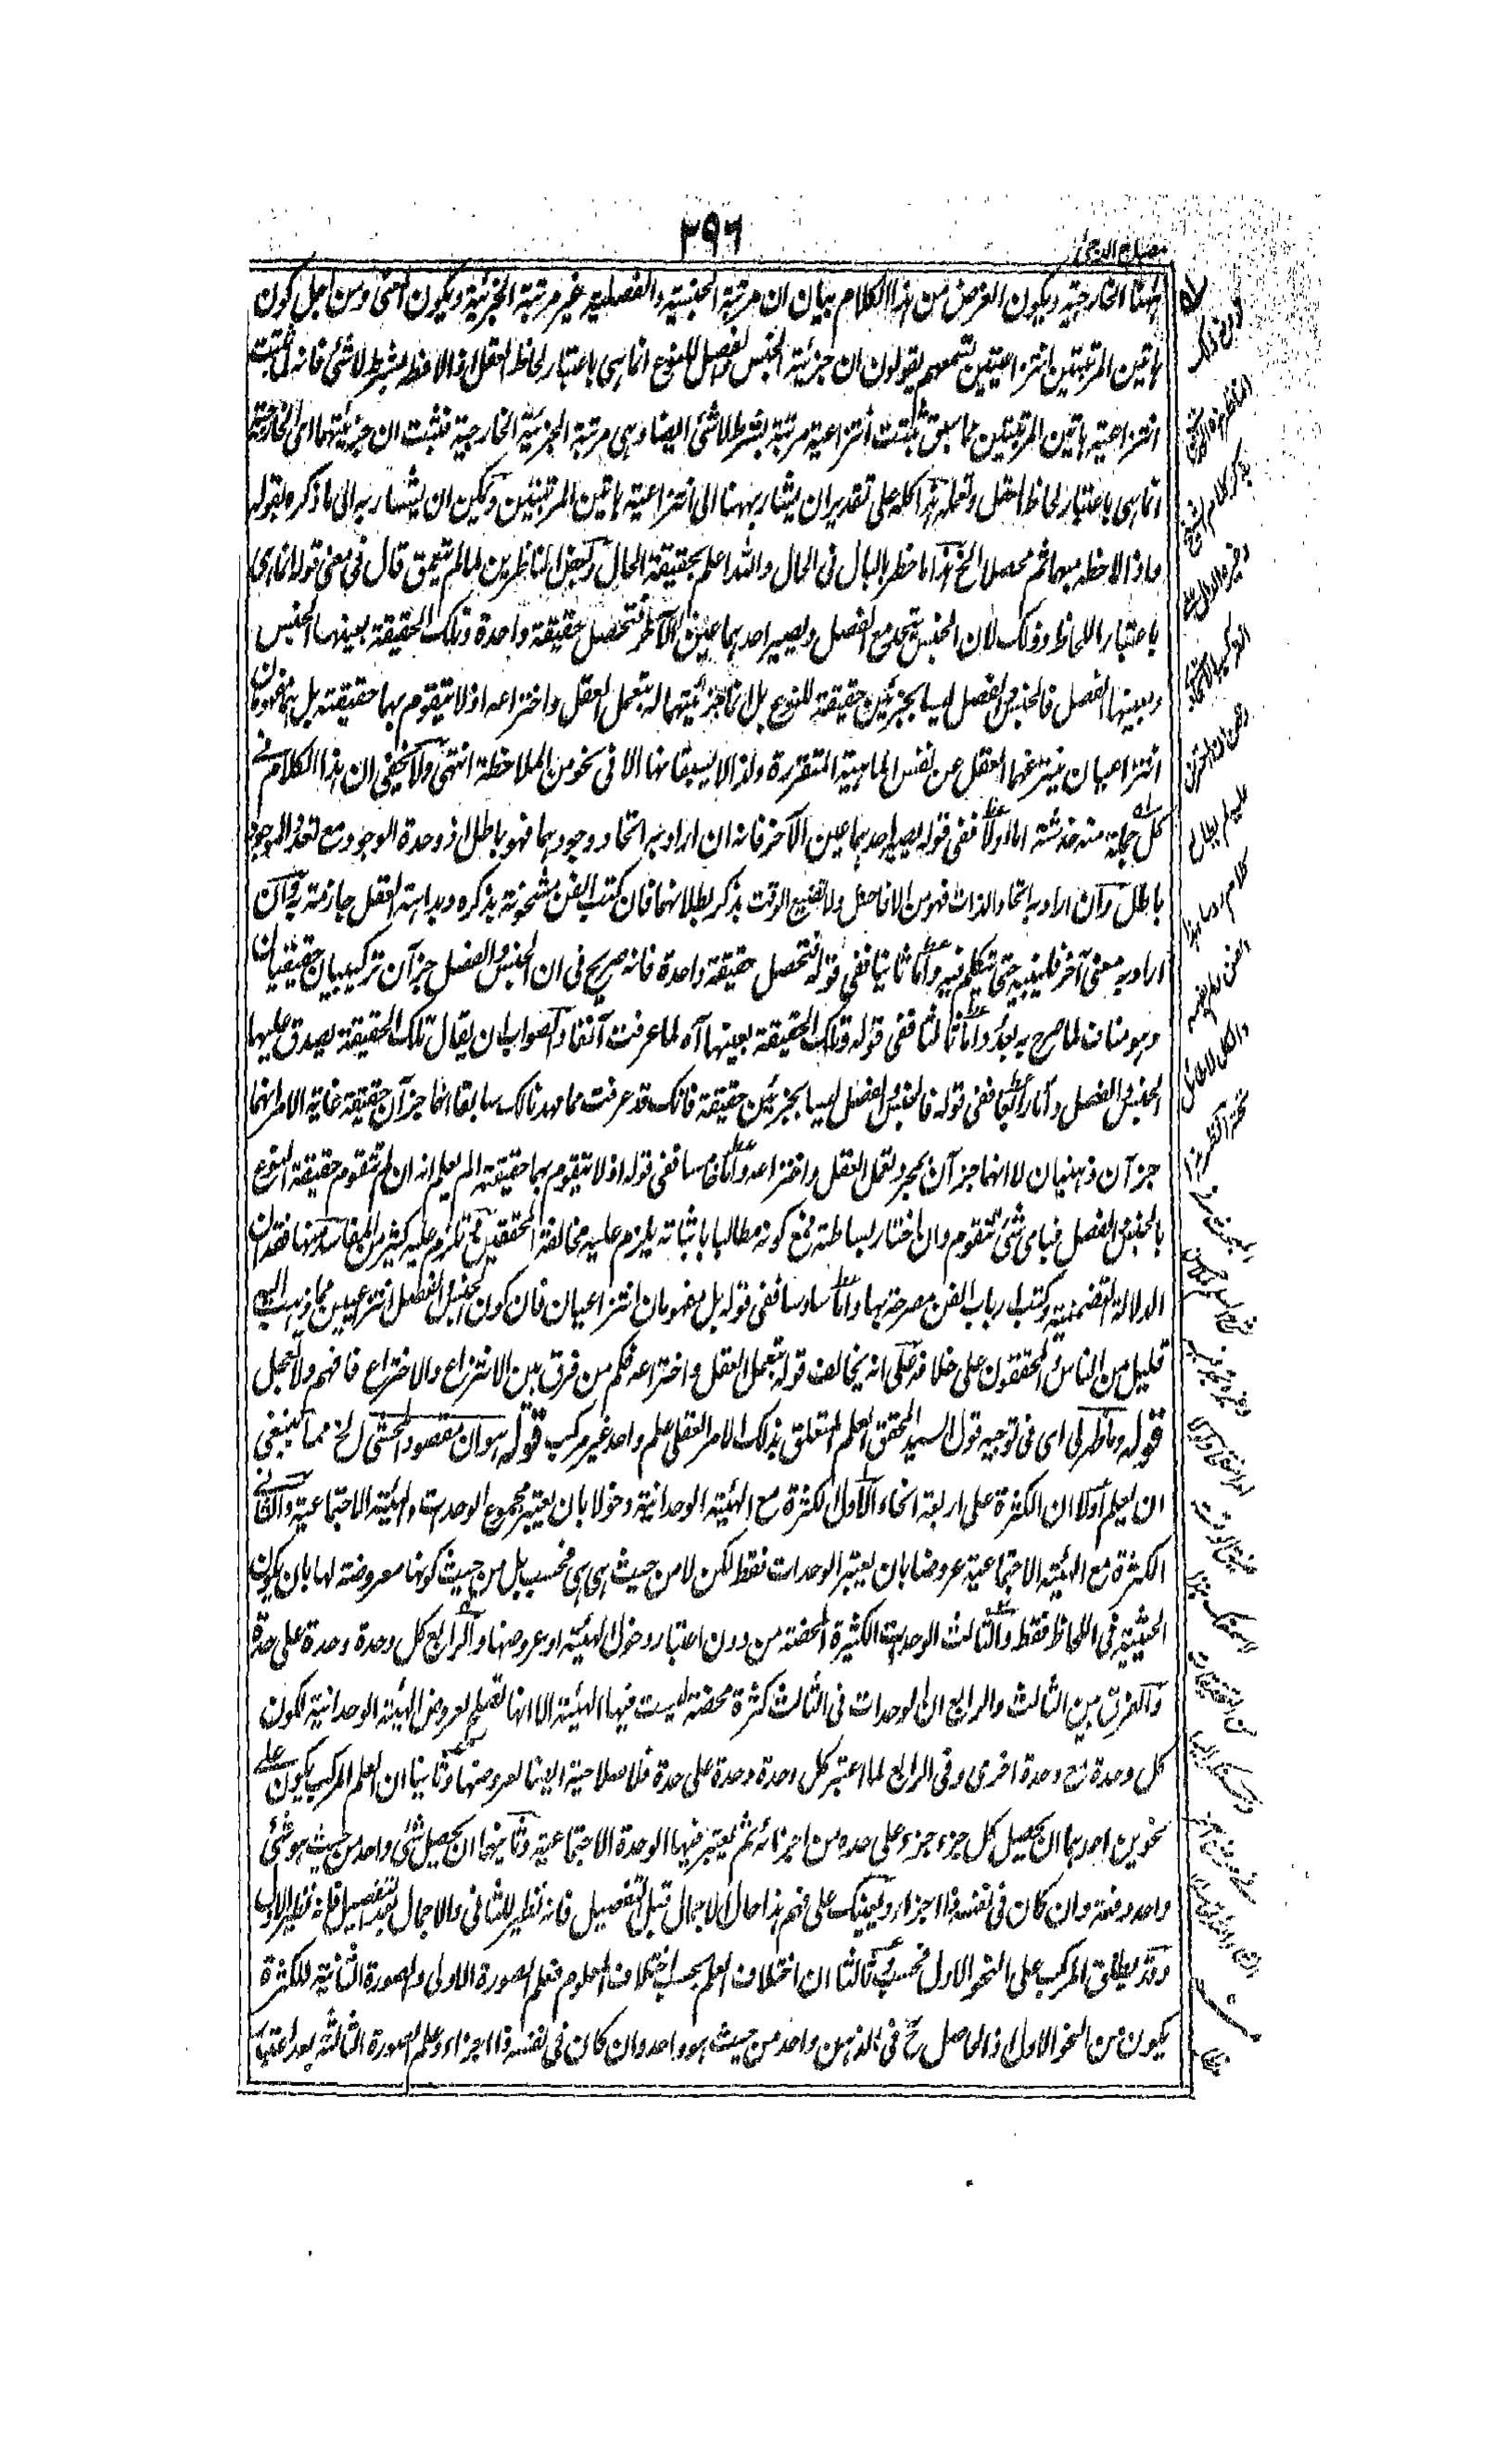 ٢٩٦
مصباح الدجى
ههنا الخارجية ويكون الغرض من هذا الكلام بيان ان مرتبة الجنسية والفصلية غير مرتبة الجزئية ويكون المعنى ومن اجل كون
هاتين المرتبتين انتزاعيتين تسمعهم يقولون ان جزئية الجنس والفصل للنوع انما هى باعتبار لحاظ العقل اذا لاحظه بشرط لا شئ فانه لما ثبت
انتزاعية هاتين المرتبتين مما سبق ثبتت انتزاعية مرتبة بشرط لا شئ ايضا وهى مرتبة الجزئية الخارجية فثبت ان جزئيتهما اى الخارجية
انما هى باعتبار لحاظ العقل وتعمله هذا كله على تقدير ان يشار بههنا الى انتزاعية هاتين المرتبتين ويمكن ان يشار به الى ما ذكره بقوله
واذا لاحظه مبهما ثم محصلا الخ هذا ما خطر بالبال فى الحال والله اعلم بحقيقة الحال وبعض الناظرين لما لم يتعمق قال فى معنى قوله انما هى
باعتبار اللحاظ وذلك لان الجنس يتحد مع الفصل ويصير احدهما عين الآخر فتحصل حقيقة واحدة وتلك الحقيقة بعينها الجنس
وبعينها الفصل فالجنس والفصل ليسا بجزئين حقيقة للنوع بل انما جزئيتهما له بتعمل العقل واختراعه اذ لا يتقوم بهما حقيقته بل هما مفهومان
انتزاعيان ينتزعهما العقل عن نفس الماهية المتقررة ولذا لا يسبقانها الا فى نحو من الملاحظة انتهى ولا يخفى ان هذا الكلام فى
كل جملة منه خدشة اما اولا ففى قوله يصير احدهما عين الآخر فانه ان اراد به اتحاد وجودهما فهو باطل اذ وحدة الوجود مع تعدد الموجود
باطل وان اراد به اتحاد الذات فهو من الافاحش ولا تضيع الوقت بذكر بطلانهما فان كتب الفن مشحونة بذكره وبداهة العقل جازمة به وان
اراد به معنى آخر فليبينه حتى نتكلم فيه واما ثانيا ففى قوله فتحصل حقيقة واحدة فانه صريح فى ان الجنس والفصل جزآن تركيبيان حقيقيان
وهو مناف لما صرح به بعد واما ثالثا ففى قوله وتلك الحقيقة بعينها آه لما عرفت آنفا والصواب ان يقال تلك الحقيقة يصدق عليها
الجنس والفصل واما رابعا ففى قوله فالجنس والفصل ليسا بجزئين حقيقة فانك قد عرفت مما مهدنا لك سابقا انهما جزآن حقيقة غاية الامر انهما
جزآن ذهنيان لا انهما جزآن بمجرد تعمل العقل واختراعه واما خامسا ففى قوله اذ لا يتقوم بهما حقيقته الم يعلم انه ان لم تتقوم حقيقة النوع
بالجنس والفصل فباى شئ تتقوم وان اختار بساطته فمع كونه مطالبا باثباته يلزم عليه مخالفة المحققين ثم تلزم عليه كثير من المفاسد منها فقدان
الدلالة التضمنية وكتب ارباب الفن مصرحة بها واما سادسا ففى قوله بل مفهومان انتزاعيان فان كون الجنس والفصل انتزاعيين مما ذهب اليه
قليل من الناس والمحققون على خلافه على انه يخالف قوله بتعمل العقل واختراعه فكم من فرق بين الانتزاع والاختراع فافهم ولا تعجل
قوله وما ظهر لى اى فى توجيه قول السيد المحقق العلم المتعلق بذلك الامر العقلى علم واحد غير مركب قوله هو ان مقصود المحشى الخ مما ينبغى
ان يعلم اولا ان الكثرة على اربعة انحاء الاول الكثرة مع الهيئة الوحدانية دخولا بان يعتبر مجموع الوحدات والهيئة الاجتماعية والثانى
الكثرة مع الهيئة الاجتماعية عروضا بان يعتبر الوحدات فقط لكن لا من حيث هى هى فحسب بل من حيث كونها معروضة لها بان يكون
الحيثية فى اللحاظ فقط والثالث الوحدات الكثيرة المحضة من دون اعتبار دخول الهيئة او عروضها والرابع كل وحدة وحدة على حدة
والفرق بين الثالث والرابع ان الوحدات فى الثالث كثرة محضة ليست فيها الهيئة الا انها تصلح لعروض الهيئة الوحدانية لكون
كل وحدة مع وحدة اخرى وفى الرابع لما اعتبر كل وحدة وحدة على حدة فلا صلاحية ايضا لعروضها وثانيا ان العلم المركب يكون على
نحوين احدهما ان يحصل كل جزء جزء على حده من اجزائه ثم يعتبر فيها الوحدة الاجتماعية وثانيهما ان يحصل شئ واحد من حيث هو شئ
واحد دفعة وان كان فى نفسه ذا اجزاء ويعينك على فهم هذا حال الاجمال قبل التفصيل فانه نظير للثانى والاجمال بعد التفصيل فانه نظير الاول
وقد يطلق المركب على النحو الاول فحسب وثالثا ان اختلاف العلم بحسب اختلاف المعلوم فعلم الصورة الاولى والصورة الثانية للكثرة
يكون من النحو الاول اذ الحاصل ح فى الذهن واحد من حيث هو واحد وان كان فى نفسه ذا اجزاء وعلم الصورة الثالثة بعد اعتبار